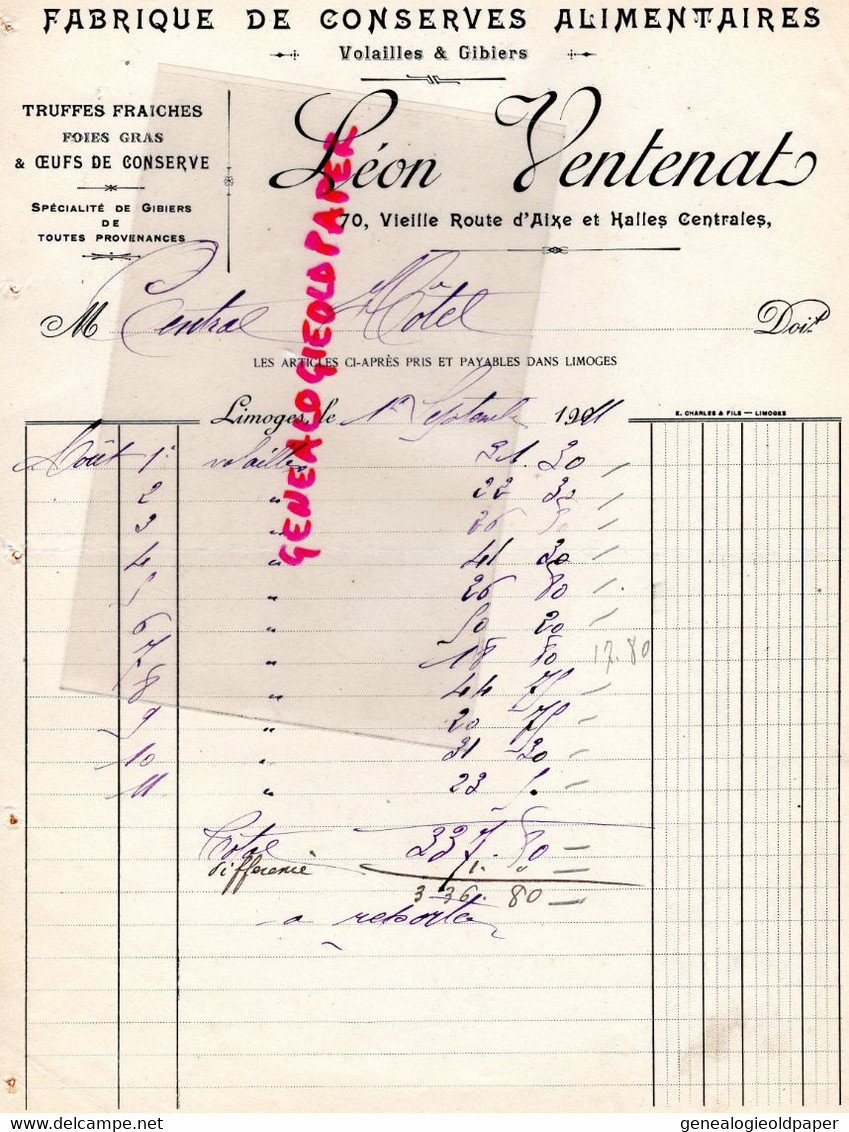 FABRIQUE DE CONSERVES ALIMENTAIRES
Volailles & Gibiers
TRUFFES FRAICHES
FOIES GRAS
& ŒUFS DE CONSERVE
SPÉCIALITÉ DE GIBIERS
DE
TOUTES PROVENANCES
Léon Ventenat
70, Vieille Route d'Aixe et Halles Centrales,
GENEALOGIEOLDPAPER
M Central Hôtel Doit
LES ARTICLES CI-APRÈS PRIS ET PAYABLES DANS LIMOGES
Limoges, le 1er Septembre 1911
E. CHARLES & FILS — LIMOGES
Août 1er volailles 31. 30
2 " 22 30
3 " 26 50
4 " 41 30
5 " 26 80
6 " 50 20
7 " 18 80 17.80
8 " 44 75
9 " 20 75
10 " 31 30
11 " 23 50
Total 337. 80
différence 1. "
336. 80
a reporter
delcampe.net
genealogieoldpaper